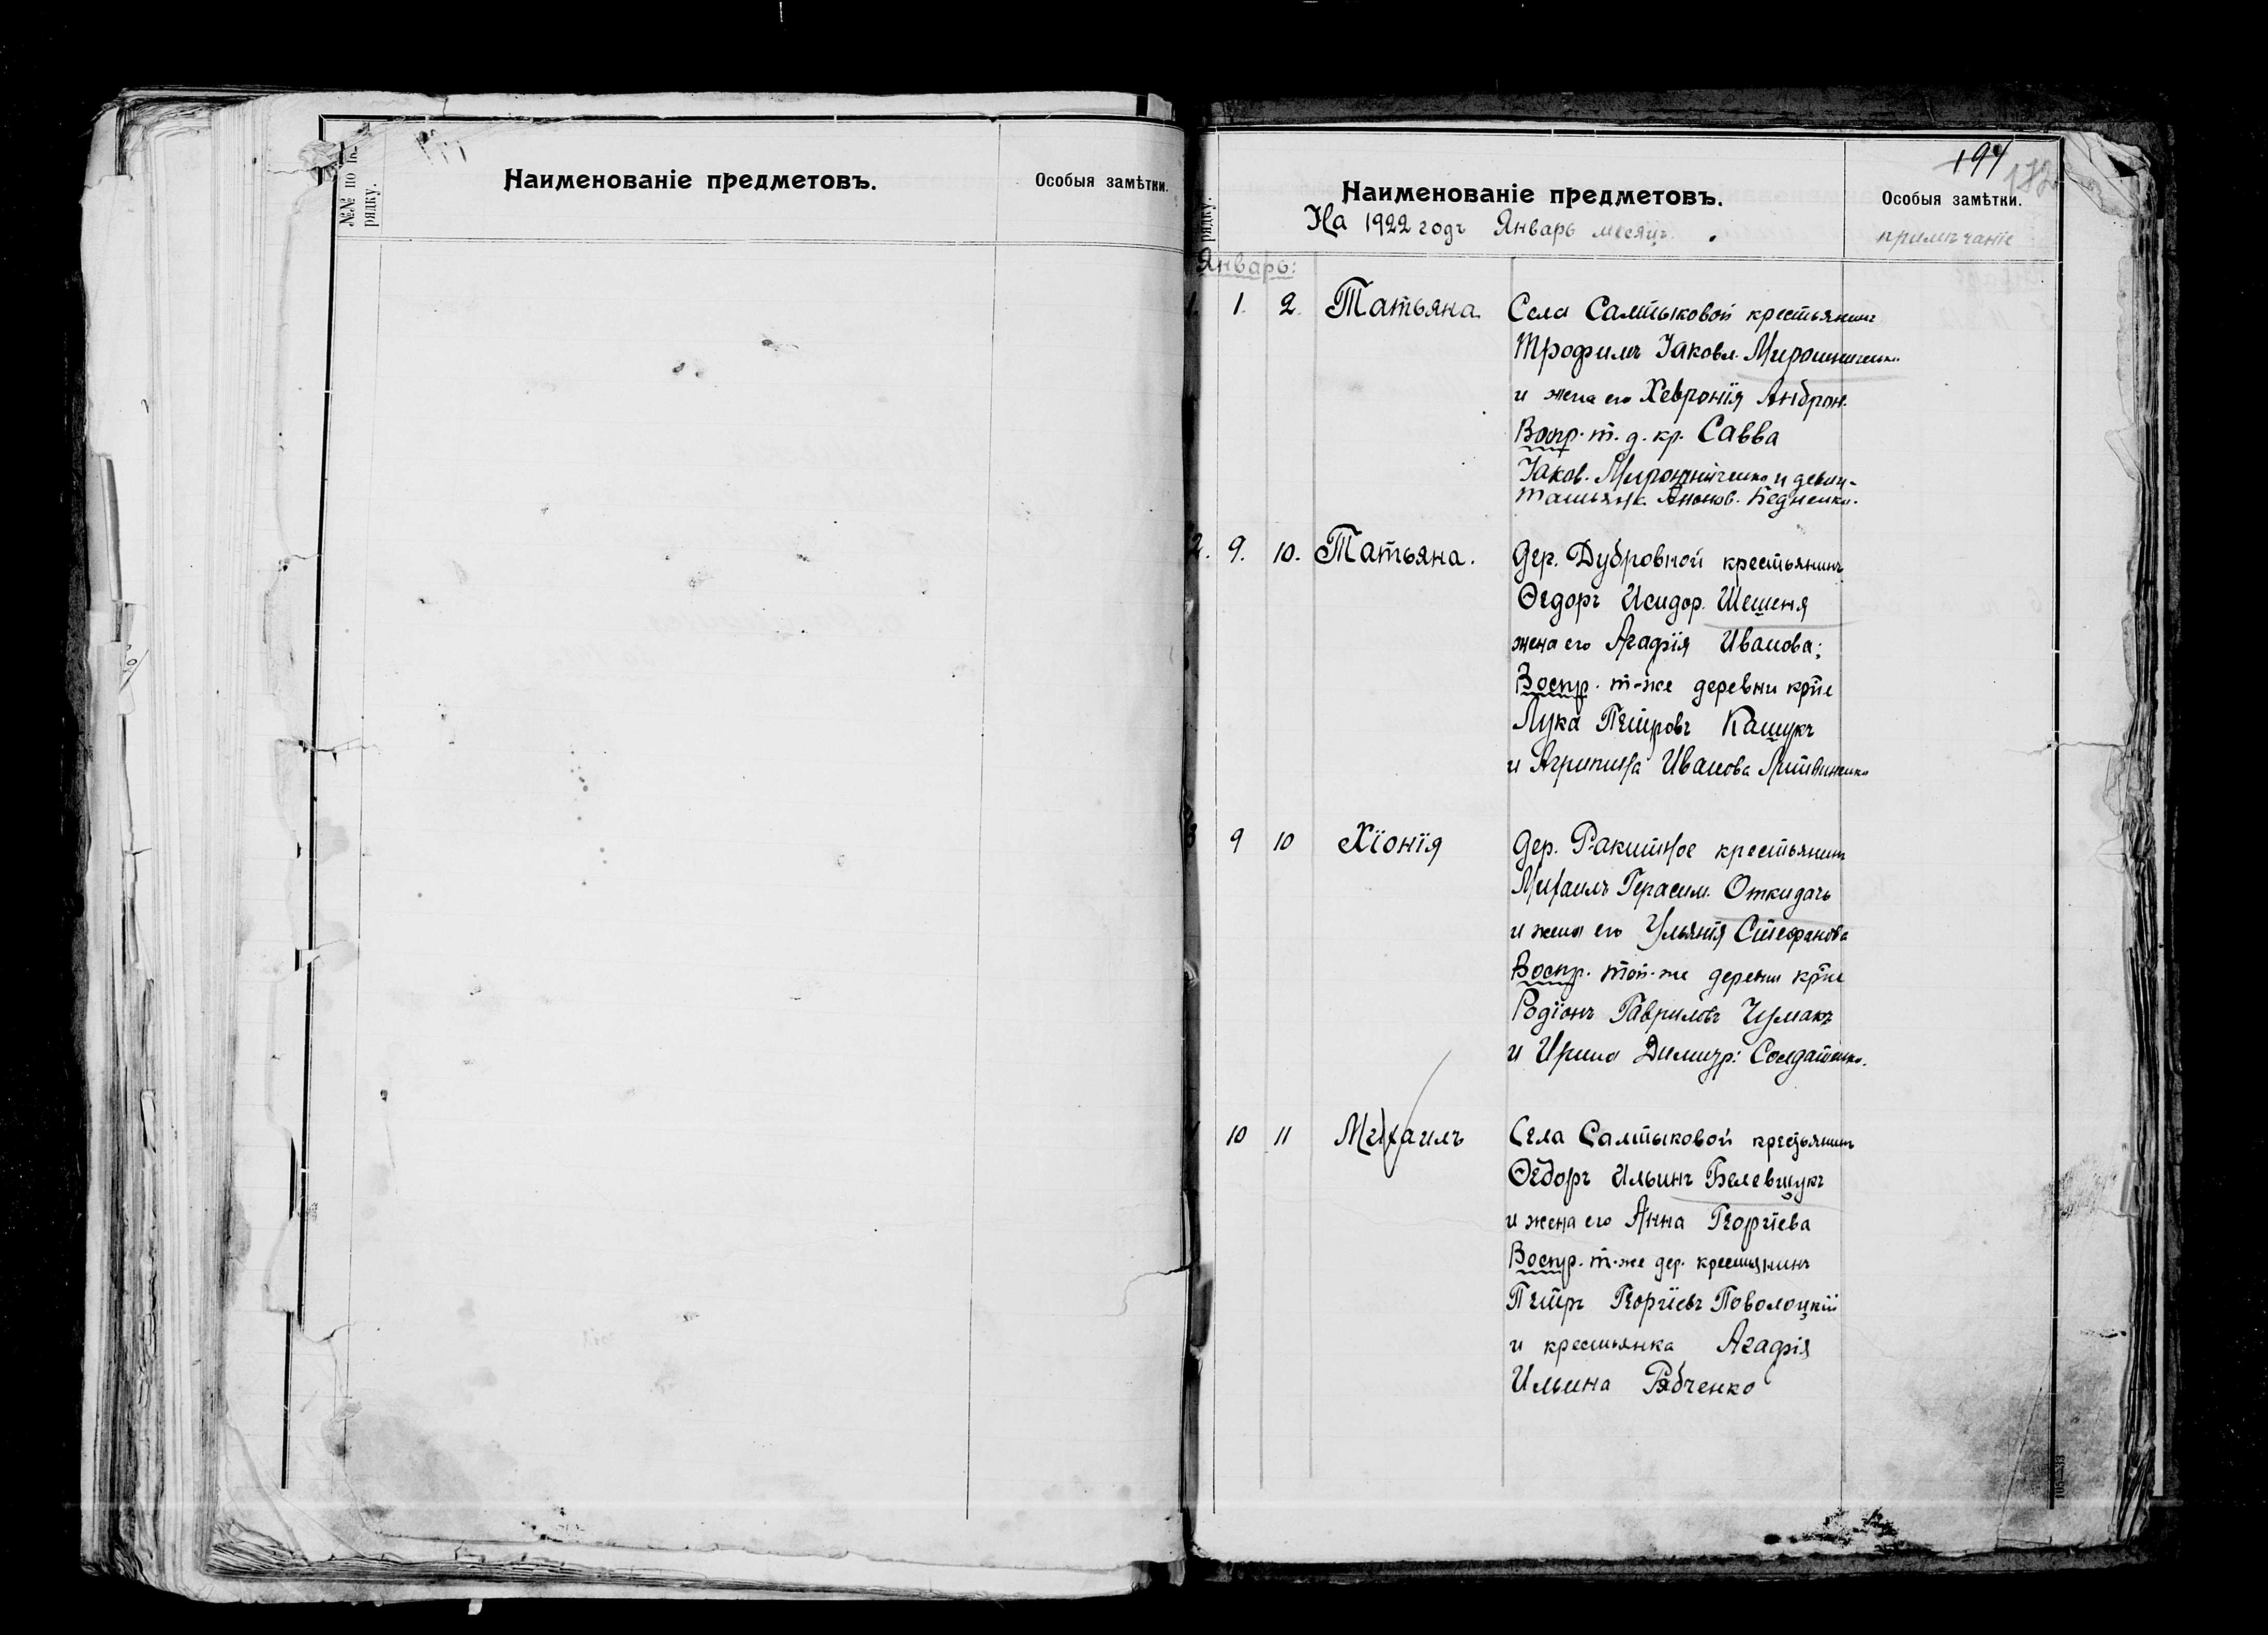 №№ по
рядку.
Наименованіе предметовъ.
Особыя замѣтки.
рядку.
Наименованіе предметовъ.
Особыя замѣтки.
194
На 1922 годъ Январь месяцъ.
примѣчаніе
Январь:
1. 1. 2. Татьяна. Села Салтыковой крестьянинъ
Трофимъ Іаковл. Мирошниченко
и жена его Хевронія Андрон.
Воспр. т. д. кр. Савва
Іаков. Мирошниченко и девиц-
Татьяна Бедненко.
2. 9. 10. Татьяна. Дер. Дубровной крестьянинъ
Ѳедоръ Исидор. Шешеня
жена его Агафія Иванова;
Воспр. т-же деревни кр-не
Лука Петровъ Кашукъ
и Агрипина Иванова Литвиненко
3 9 10 Хіонія Дер. Ракитное крестьянинъ
Михаилъ Герасим. Откидачъ
и жена его Ульянія Стефанова
Воспр. той-же деревни кр-не
Родіонъ Гавриловъ Чумакъ
и Ирина Димитр: Солдатенко.
10 11 Михаилъ Села Салтыковой крестьянинъ
Ѳедоръ Ильинъ Белевщукъ
и жена его Анна Георгіева
Воспр. т-же дер. крестьянинъ
Петръ Георгіевъ Поволоцкій
и крестьянка Агафія
Ильина Рябченко